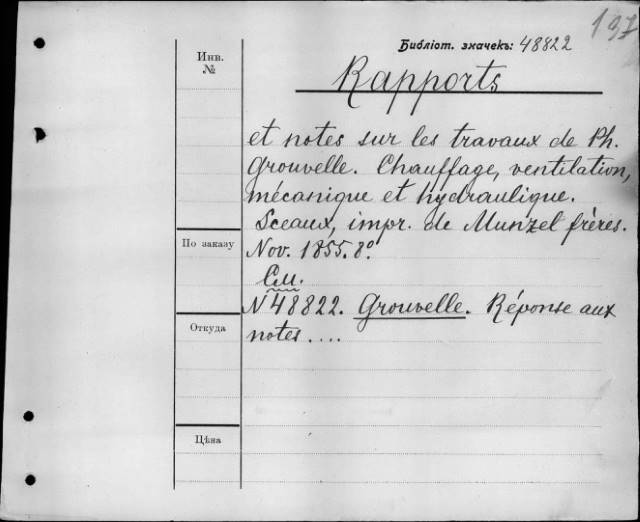 197
Библіот. значекъ: 48822
Инв.
№
Rapports
et notes sur les travaux de Ph.
Grouvelle. Chauffage, ventilation,
mécanique et hydraulique.
Sceaux, impr. de Munzel frères.
По заказу
Nov. 1855. 8º
См.
N 48822. Grouvelle. Réponse aux
Откуда
notes....
Цѣна